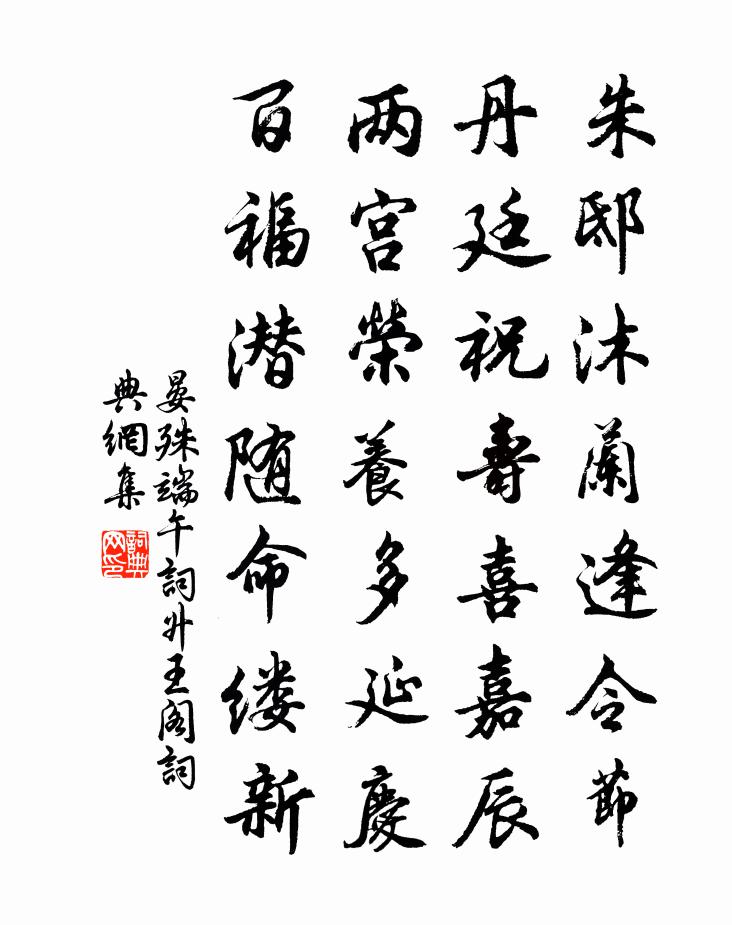 朱邸沐蘭逢令節
丹廷祝壽喜嘉辰
两宫榮養多延慶
百福潜随命缕新
晏殊端午詞升王阁詞
典網集
詞典网印